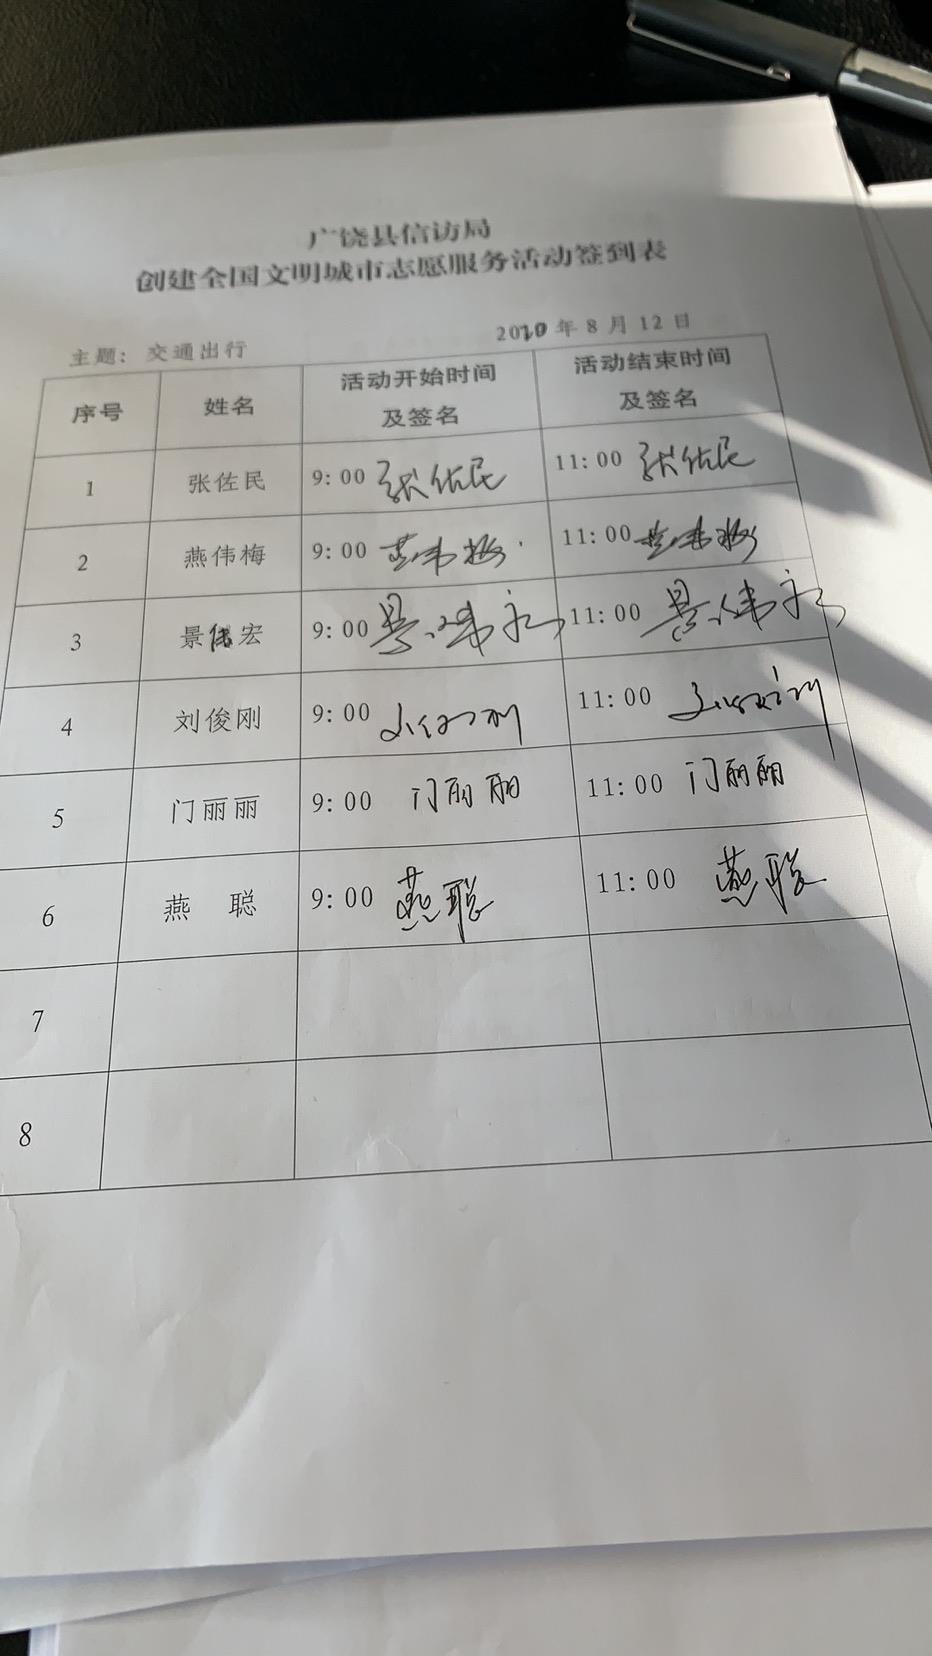 广饶县信访局
创建全国文明城市志愿服务活动签到表
主题：交通出行 2020年8月12日
序号 姓名 活动开始时间及签名 活动结束时间及签名
1 张佐民 9:00 张佐民 11:00 张佐民
2 燕伟梅 9:00 燕伟梅 11:00 燕伟梅
3 景伟宏 9:00 景伟宏 11:00 景伟宏
4 刘俊刚 9:00 刘俊刚 11:00 刘俊刚
5 门丽丽 9:00 门丽丽 11:00 门丽丽
6 燕 聪 9:00 燕聪 11:00 燕聪
7
8